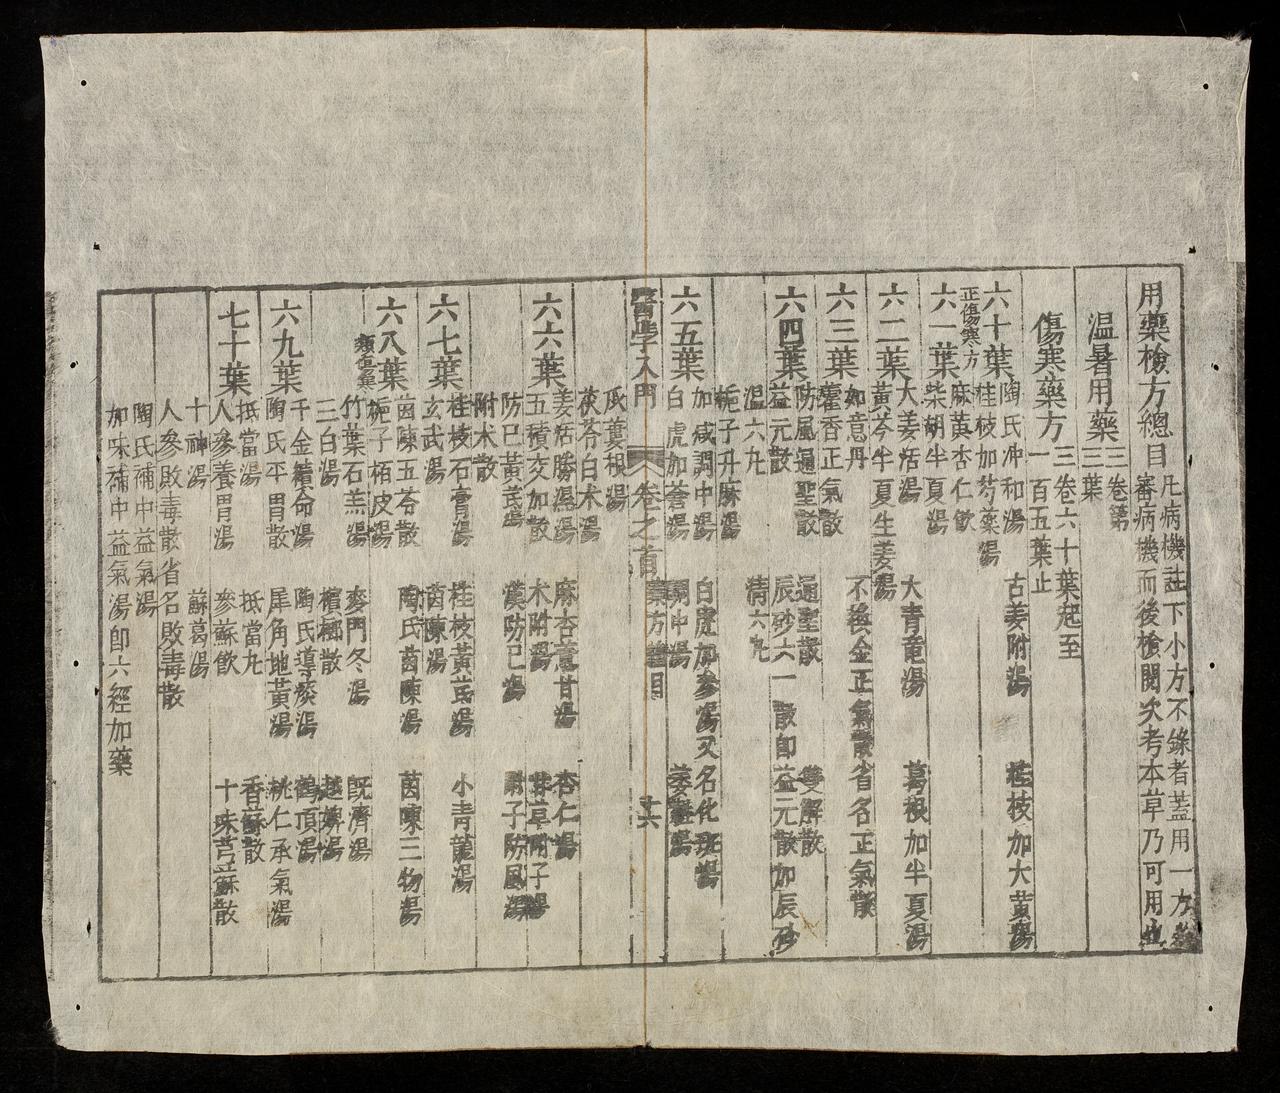 用藥檢方總目
凡病機註下小方不錄者蓋用一方
審病機而後檢閱次考本草乃可用也
溫暑用藥
三卷第
三葉
傷寒藥方
三卷六十葉起至
一百五葉止
六十葉
陶氏冲和湯 古姜附湯 桂枝加大黃湯
桂枝加芍藥湯
正傷寒方
麻黃杏仁飲
六一葉
柴胡半夏湯
大羗活湯 大青竜湯 葛根加半夏湯
六二葉
黃芩半夏生姜湯
如意丹 不換金正氣散省名正氣散
六三葉
藿香正氣散
防風通聖散 通聖散 雙解散
六四葉
益元散 辰砂六一散卽益元散加辰砂
溫六丸 清六丸
梔子升麻湯
加減調中湯 白虎加參湯又名化斑湯
六五葉
白虎加蒼湯 調中湯 萎蕤湯
醫學入門 卷之首 藥方總目 十六
瓜蔞根湯
茯苓白朮湯
羗活勝濕湯 麻杏薏甘湯 杏仁湯
六六葉
五積交加散 朮附湯 甘草附子湯
防己黃茋湯 漢防己湯 附子防風湯
附朮散
桂枝石膏湯 桂枝黃茋湯 小青龍湯
六七葉
玄武湯 茵陳湯
茵陳五苓散 陶氏茵陳湯 茵陳三物湯
六八葉
梔子栢皮湯
類傷寒
竹葉石羔湯 麥門冬湯 旣濟湯
三白湯 檳榔散 越婢湯
千金續命湯 陶氏導痰湯 鶴頂湯
六九葉
陶氏平胃散 犀角地黃湯 桃仁承氣湯
抵當湯 抵當丸 香蘇散
七十葉
人參養胃湯 參蘇飮 十味芎蘇散
十神湯 蘇葛湯
人參敗毒散省名敗毒散
陶氏補中益氣湯
加味補中益氣湯卽六經加藥